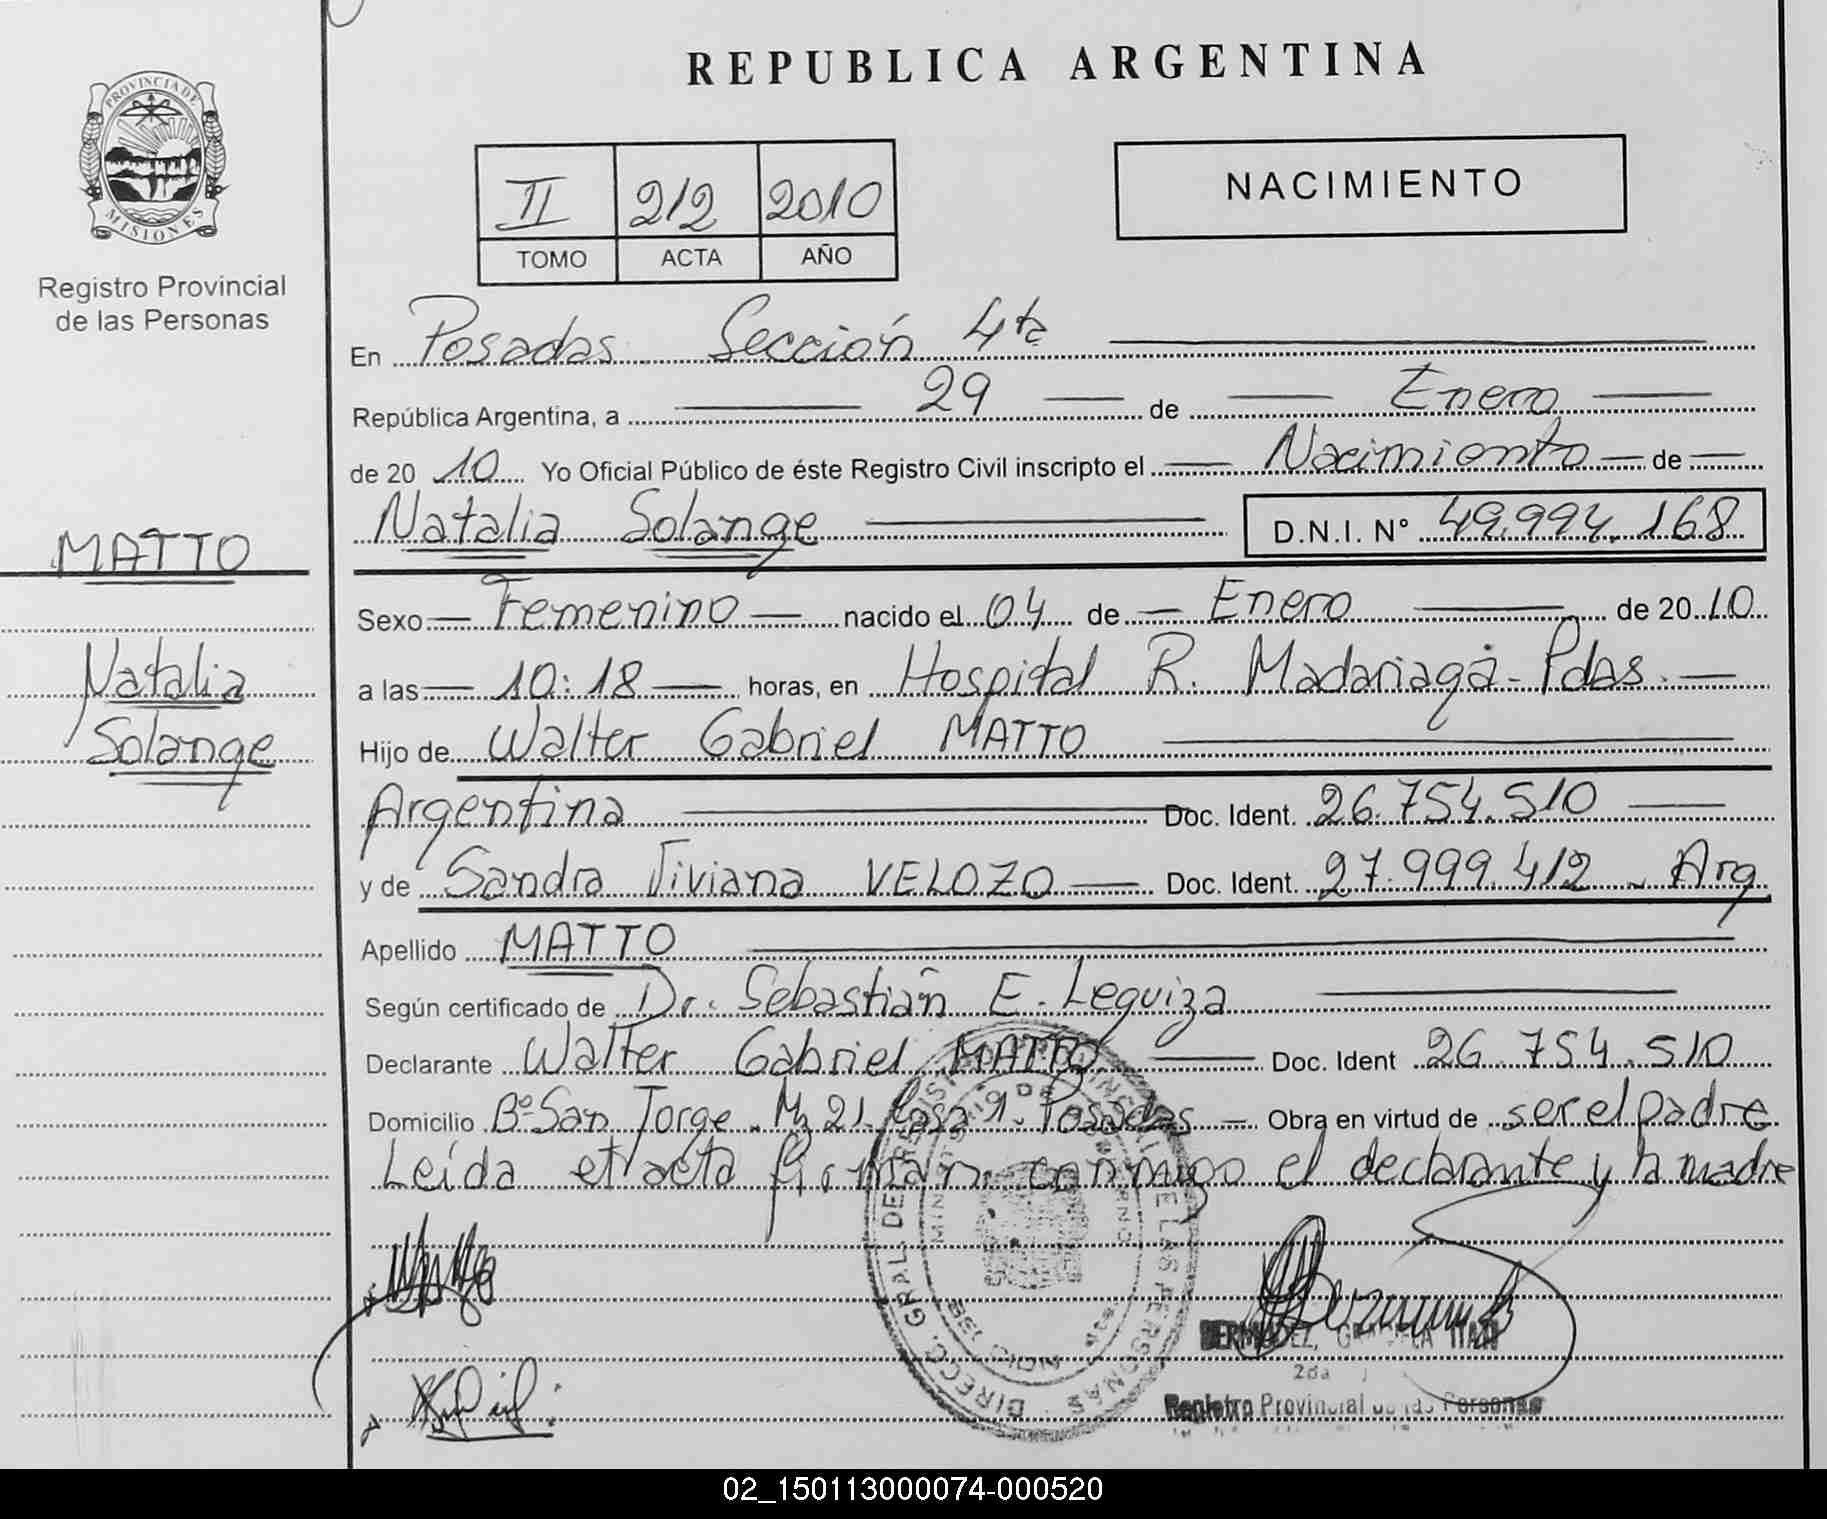 REPUBLICA ARGENTINA
PROVINCIA DE
MISIONES
Registro Provincial
de las Personas
NACIMIENTO
II 212 2010
TOMO ACTA AÑO
En Posadas Sección 4ta
República Argentina, a 29 de Enero
de 20 10 Yo Oficial Público de éste Registro Civil inscripto el Nacimiento de
Natalia Solange D.N.I. N° 49.994.168
MATTO
Natalia
Solange
Sexo Femenino nacido el 04 de Enero de 20 10
a las 10:18 horas, en Hospital R. Madariaga - Pdas.
Hijo de Walter Gabriel MATTO
Argentina Doc. Ident. 26.754.510
y de Sandra Viviana VELOZO Doc. Ident. 27.999.412 - Arg
Apellido MATTO
Según certificado de Dr. Sebastián E. Leguiza
Declarante Walter Gabriel MATTO Doc. Ident 26.754.510
Domicilio Bº San Jorge. Mz 21 Casa 9. Posadas - Obra en virtud de ser el padre
Leída el acta firman conmigo el declarante y la madre
BERMUDEZ, GRACIELA
2da
Registro Provincial de las Personas
02_150113000074-000520